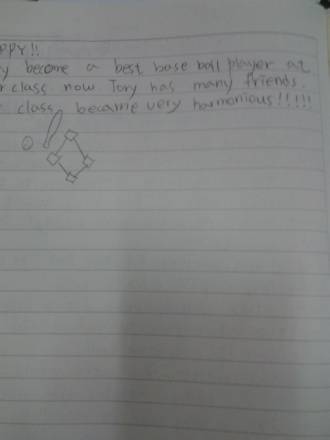 PPY!!
y become a best base ball player at
r class now Tory has many friends.
class became very harmonious!!!!!